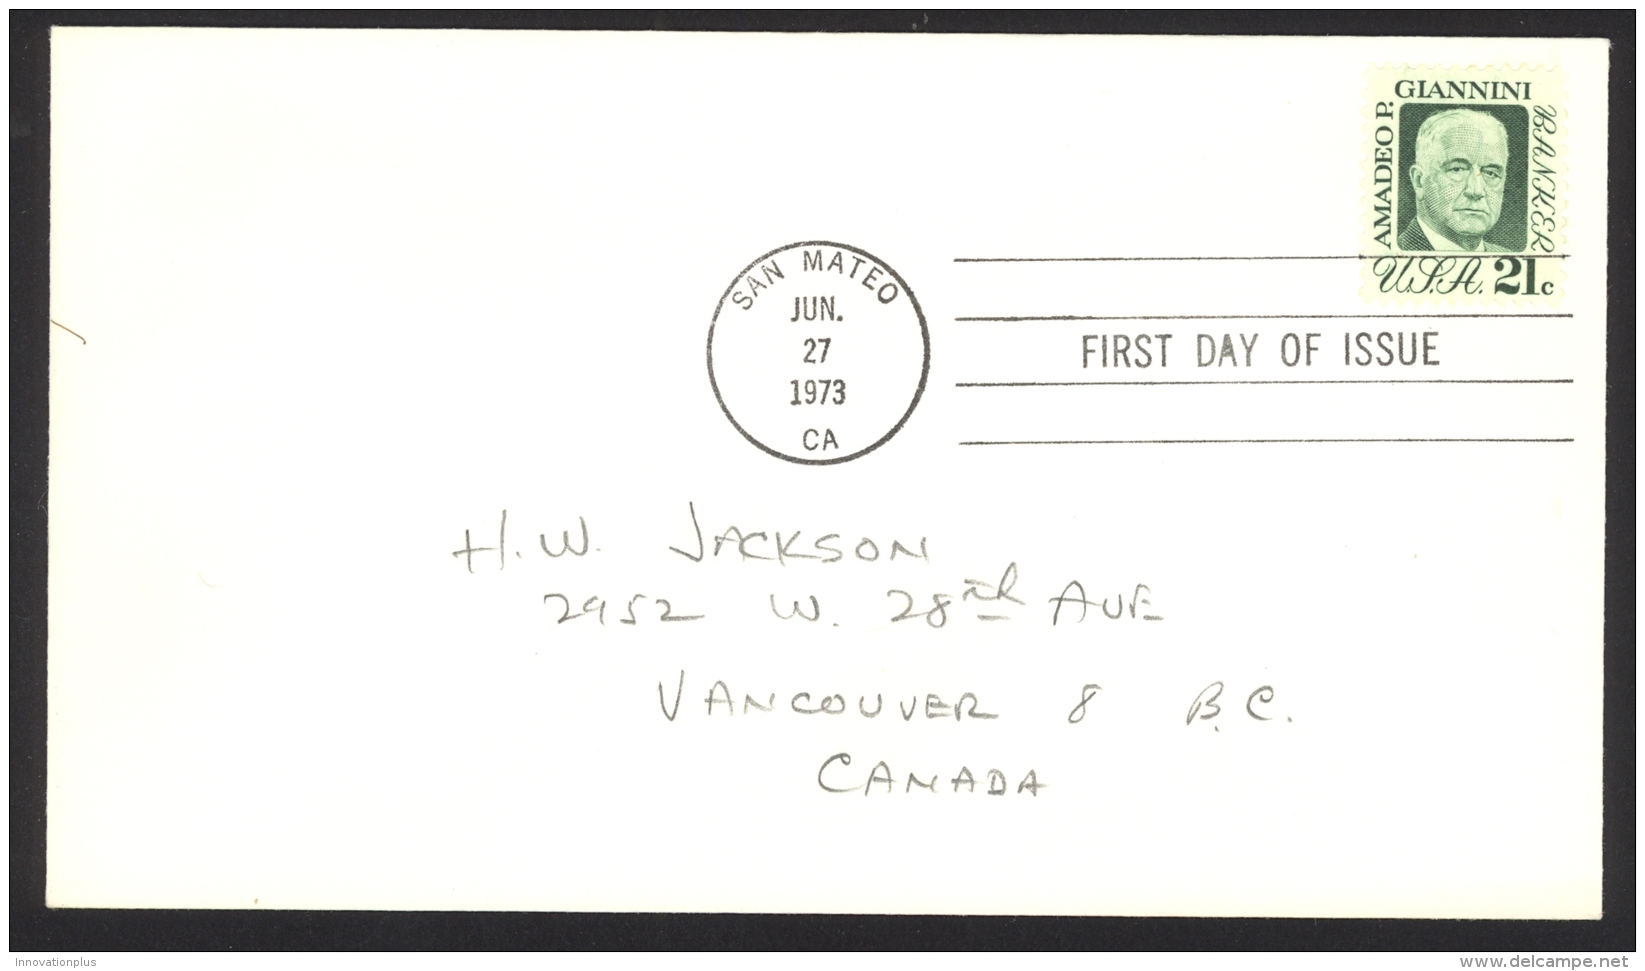 AMADEO P. GIANNINI BANKER
U.S.A. 21c
SAN MATEO
JUN.
27
1973
CA
FIRST DAY OF ISSUE
H.W. JACKSON
2952 W. 28th AVE
VANCOUVER 8 B.C.
CANADA
Innovationplus
www.delcampe.net